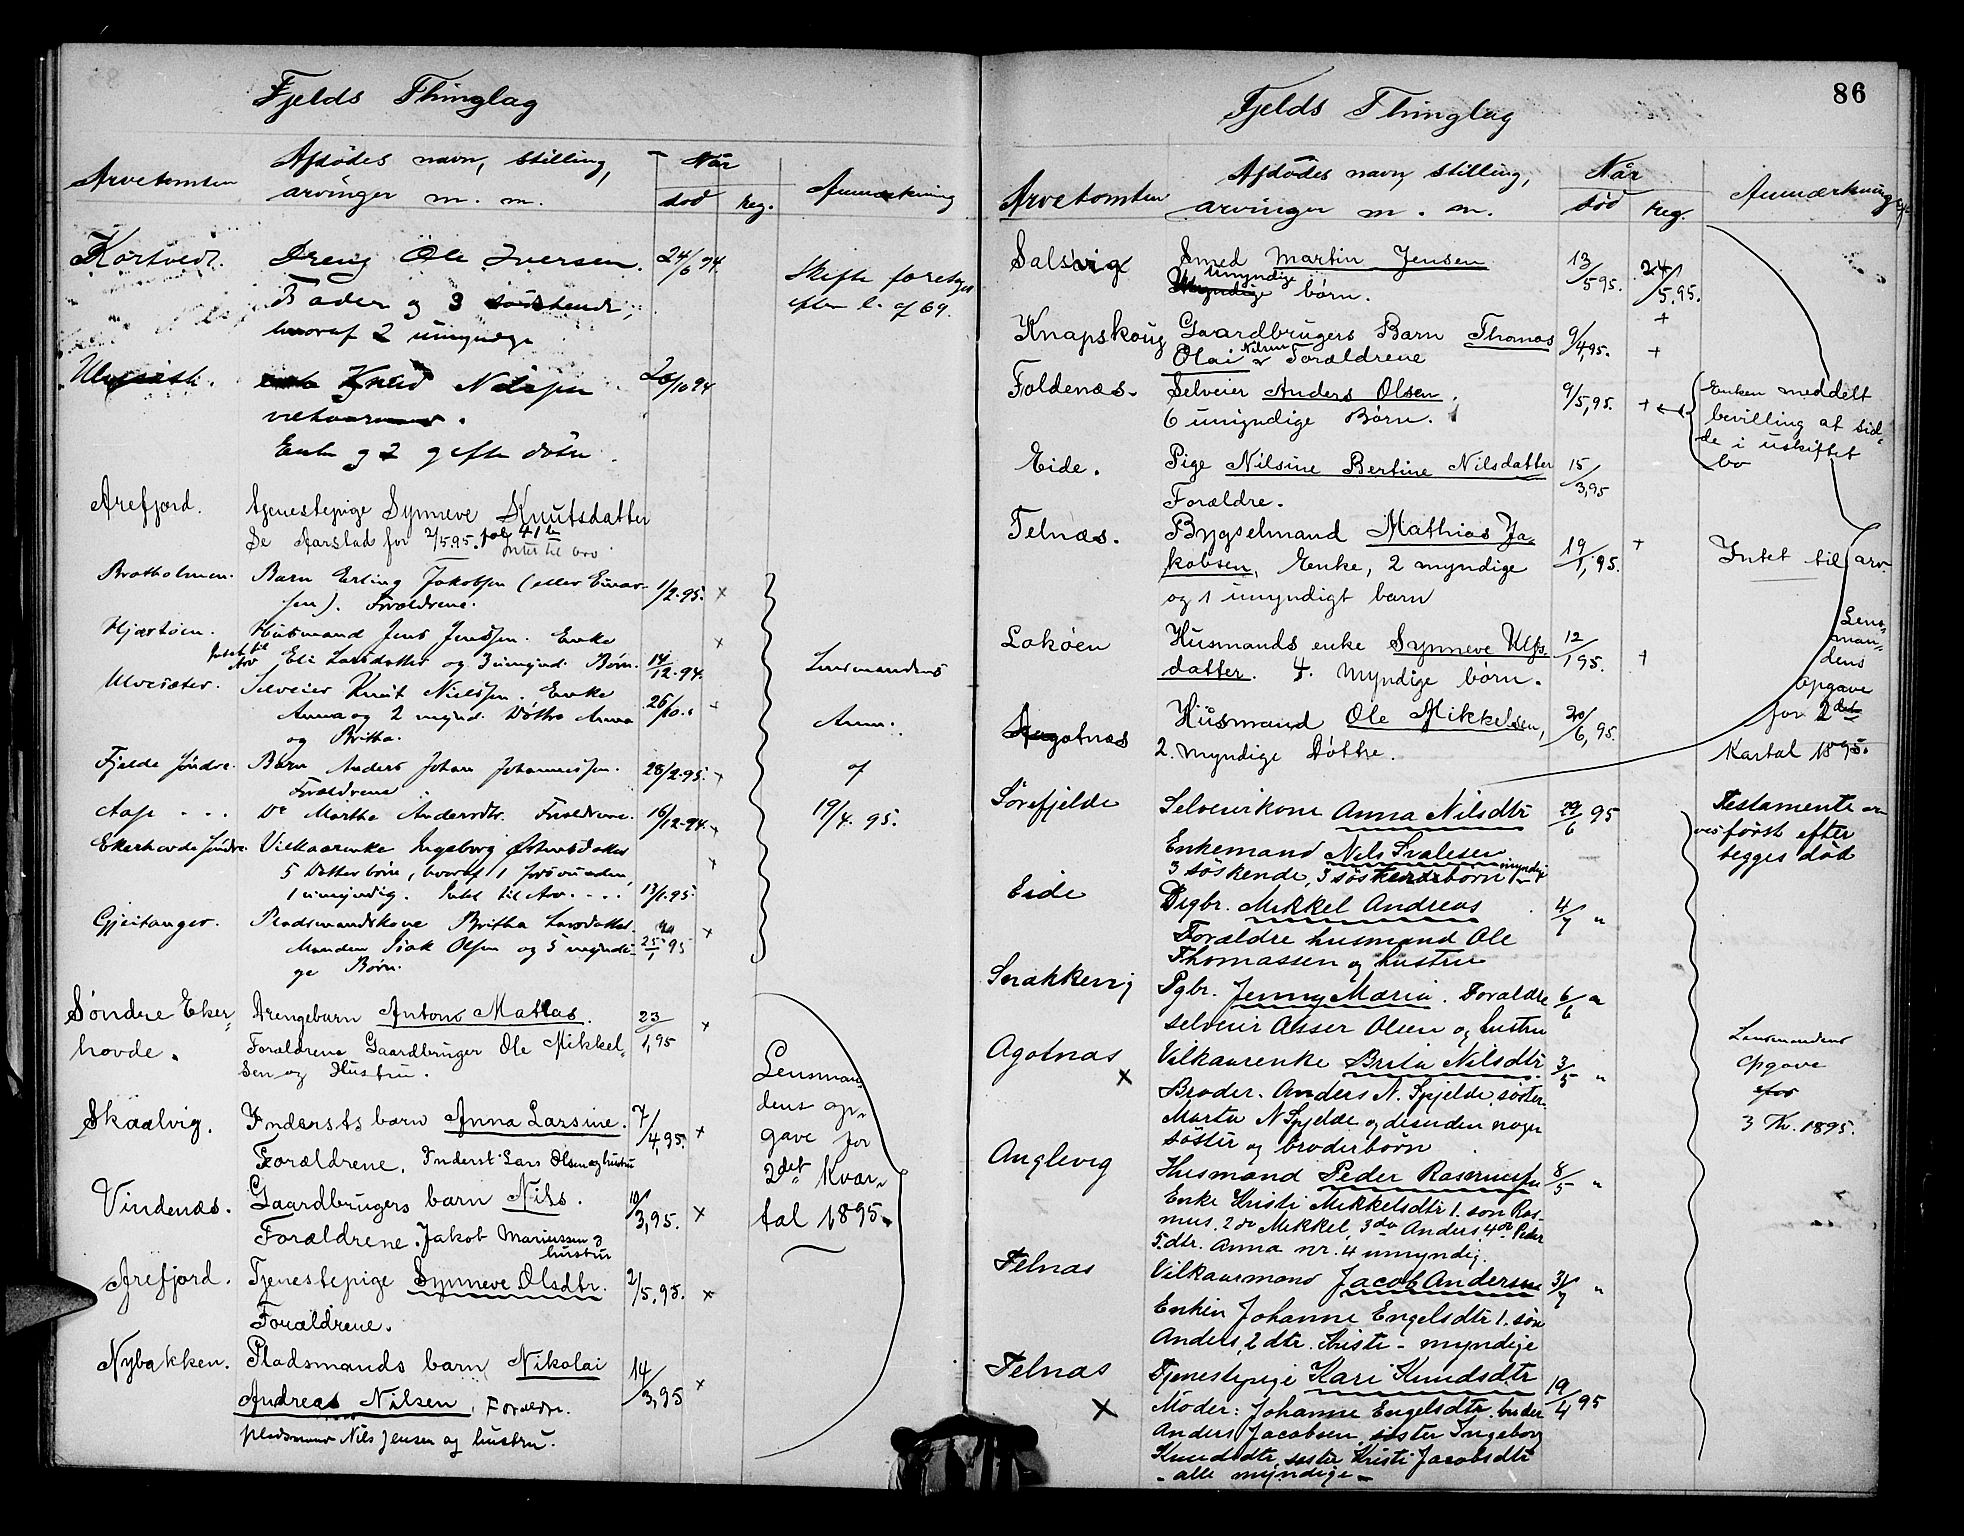 Fjelds Thinglag
Arvetomten
Afdødes navn, stilling,
arvinger m. m.
Når
död
reg.
Anmærkning
Kørtvedt.
Dreng Ole Iversen.
24/6 94.
Fader og 3 södskende,
hvoraf 2 umyndige
Skifte foretages
efter l. af 69.
Knud Nilsen
26/10 94
Enke og 2 gifte døtre.
Arefjord.
Tjenestepige Synneve Knutsdatter
Se Aarstad for 2/5 95. fol 41 b
Intet til arv.
Bratholmen.
Barn Erling Jakobsen (eller Einar-
sen). Forældrene.
1/2.95.
x
Hjærtöen.
Husmand Jens Jenssen. Enke
Intet til Arv
Eli Larsdatter og 3 umynd. Børn.
14/12.94.
x
Ulvesæter.
Selveier Knut Nielssen. Enke
Anna og 2 mynd. Døttre Anna
og Britha.
26/10.
Lensmandens
Anm:
af
19/4. 95.
Fjelde Jndre.
Barn Anders Johan Johannessen.
Forældrene
28/2.95.
Do Martha Andersdtr. Forældrene.
16/12.94.
Ekerhovde Jndre.
Vilkaarenke Ingeborg Østensdatter
5 Datterbörn, hvoraf 1
1 umyndig. Intet til Arv.
13/1.95
x
Gjeitanger.
Pladsmandskone Britha Larsdatter.
Manden Isak Olsen og 5 myndi-
ge Børn.
25/1 95
x
Søndre Eker-
hovde.
Drengebarn Anton Matias.
Forældrene Gaardbruger Ole Mikkel-
sen og Hustru.
23/1,95
x
Skaalvig.
Inderstsbarn Anna Larsine.
Forældrene, Inderst Lars Olsen og hustru
7/4,95.
x
Lensman-
dens op-
gave for
2det Kvar-
tal 1895.
Vindenæs.
Gaardbrugers barn Nils.
Forældrene. Jakob Mariussen &
hustru
10/3,95.
x
Arefjord.
Tjenestepige Synneve Olsdtr.
Forældrene.
2/5,95.
x
Nybakken.
Pladsmands barn Nikolai
Andreas Nilsen, Forældre.
pladsmand Nils Jensen og hustru.
14/3,95
x
86
Fjelds Thinglag
Arvetomten
Afdödes navn, stilling,
arvinger m. m.
Når
død
reg.
Anmærkning
Salsvig
Smed Martin Jensen
Umyndige børn.
13/5 95.
24/5,95.
+
Knapskoug
Gaardbrugers Barn Thomas
Olai Nilsen Forældrene
9/4,95.
+
Foldenæs.
Selveier Anders Olsen.
6 umyndige Børn.
9/5,95.
+
Enken meddelt
bevilling at sid-
de i uskiftet
bo
Eide.
Pige Nilsine Bertine Nilsdatter
Forældre.
15/3,95
Telnæs.
Bygselmand Mathias Ja-
kobsen, Enke, 2 myndige
og 1 umyndigt barn
19/1,95.
+
Intet til arv.
Lokøen
Husmands enke Synneve Ulfs-
datter. 4. myndige børn.
12/1 95.
+
Lens-
man-
dens
Opgave
for 2det
Kartal 1895.
Agotnæs
Husmand Ole Mikkelsen,
2. myndige Døttre.
20/6,95.
Sørefjelde
Selveierkone Anna Nilsdtr
Enkemand Nils
3 söskende, 3 söskendebörn myndige
29/6 95
Testamente ar-
ves först efter
begges död
Eide
Drgbr. Mikkel Andreas
Forældre husmand Ole
Thomassen og hustru
4/7 "
Snekkevig
Pgbr. Jenny Maria. Forældre
selveier Asser Olsen og hustru
6/6 "
Agotnæs
x
Vilkaarenke Brita Nilsdtr
Broder. Anders N. Spjelde, söster
Marta N Spjelde og desuden nogen
söster og broderbörn
3/5 "
Lensmandens
Opgave
for
3 Kv. 1895.
Anglevig
Husmand Peder Rasmussen
Enke Kristi Mikkelsdtr 1. sön Ras-
mus, 2 do Mikkel, 3 do Anders, 4 do Peder
5. dtr. Anna nr. 4 umyndig.
8/5 "
Telnæs
Vilkaarmand Jacob Andersen
Enken Johanne Engelsdtr 1. sön
Anders, 2 dtr. Kristi - myndige
31/7 "
Telnæs
x
Tjenestepige Kari Knudsdtr
Moder: Johanne Engelsdtr. broder
Anders Jacobsen, söster Ingeborg
Knudsdtr, söster Kristi Jacobsdtr
- alle myndige -
19/4 95